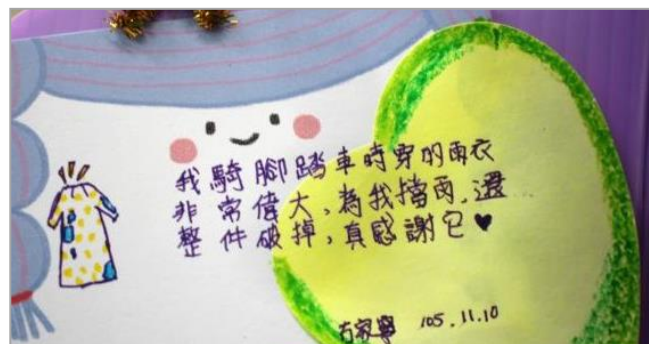 我騎腳踏車時穿的雨衣
非常偉大,為我擋雨,還
整件破掉,真感謝它♥
方家寧 105.11.10